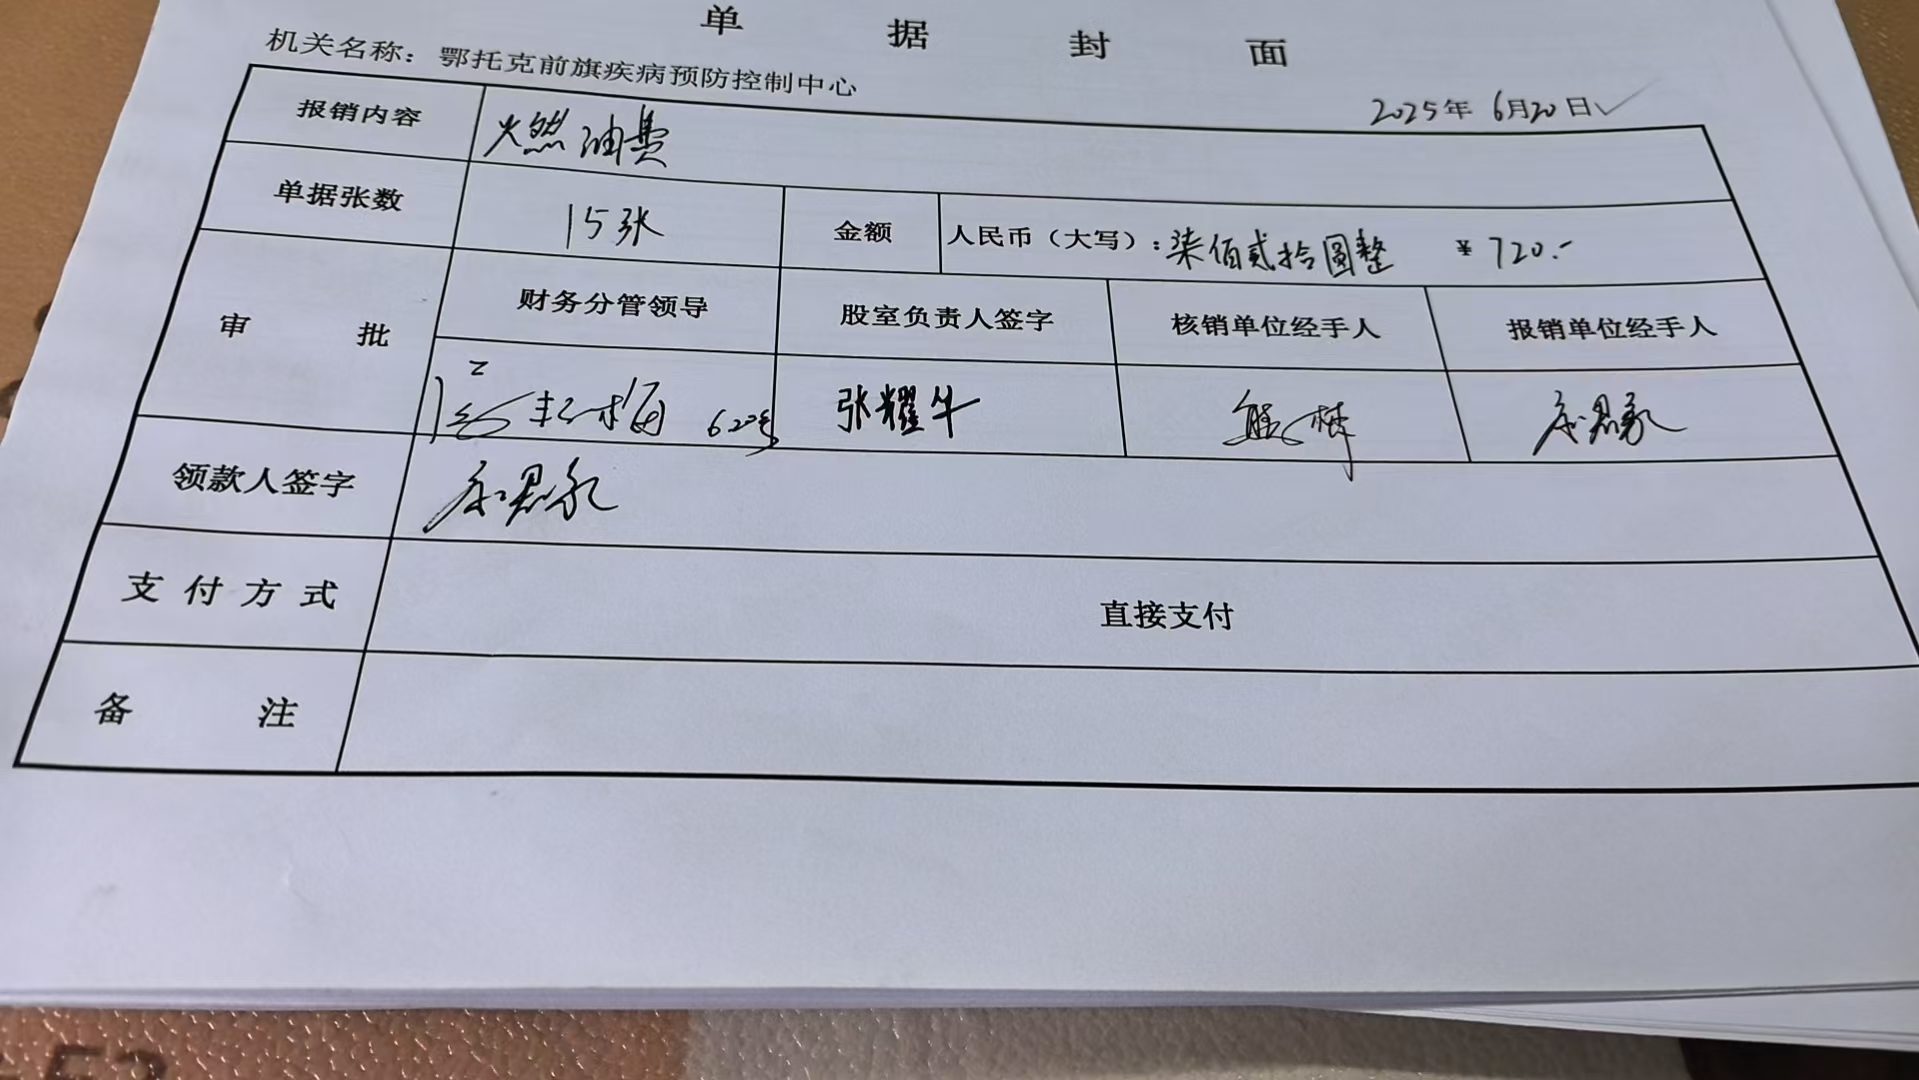 单 据 封 面
机关名称：鄂托克前旗疾病预防控制中心
2025年 6月20日
报销内容 燃油费
单据张数 15张 金额 人民币（大写）：柒佰贰拾圆整 ¥ 720.-
审 批 财务分管领导 股室负责人签字 核销单位经手人 报销单位经手人
张耀华
领款人签字
支付方式 直接支付
备 注